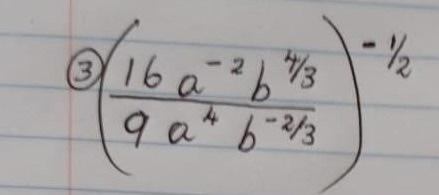 ③ (16 a⁻² b^4/3 / 9 a⁴ b^-2/3)^-1/2